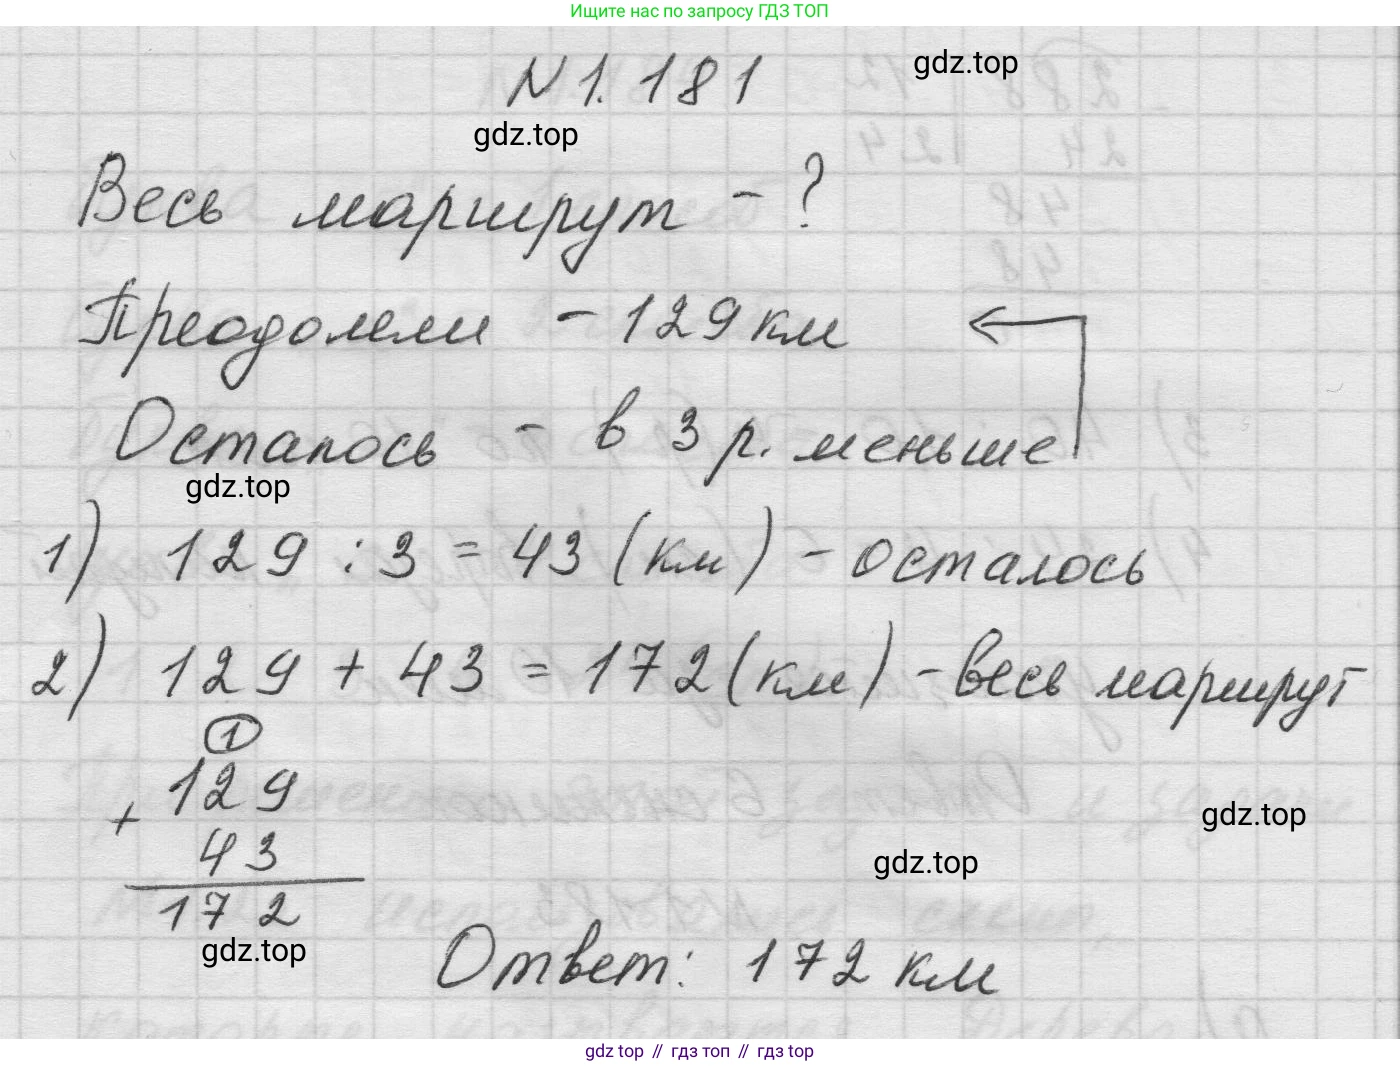 Ищите нас по запросу ГДЗ ТОП
N 1.181
gdz.top
gdz.top
Весь маршрут - ?
Преодолели - 129 км
Осталось - в 3 р. меньше
gdz.top
1) 129 : 3 = 43 (км) - осталось
2) 129 + 43 = 172 (км) - весь маршрут
1
129
+
43
172
gdz.top
gdz.top
gdz.top
Ответ: 172 км
gdz top // гдз топ // gdz top